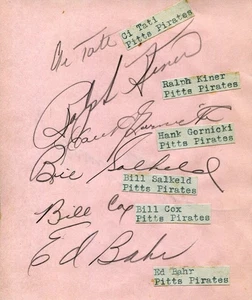 Vi Tatt
Ci Tati
Pitts Pirates
Ralph Kiner
Ralph Kiner
Pitts Pirates
Hank Gornicki
Pitts Pirates
Bill Salkeld
Bill Salkeld
Pitts Pirates
Bill Cox
Bill Cox
Pitts Pirates
Ed Bahr
Ed Bahr
Pitts Pirates